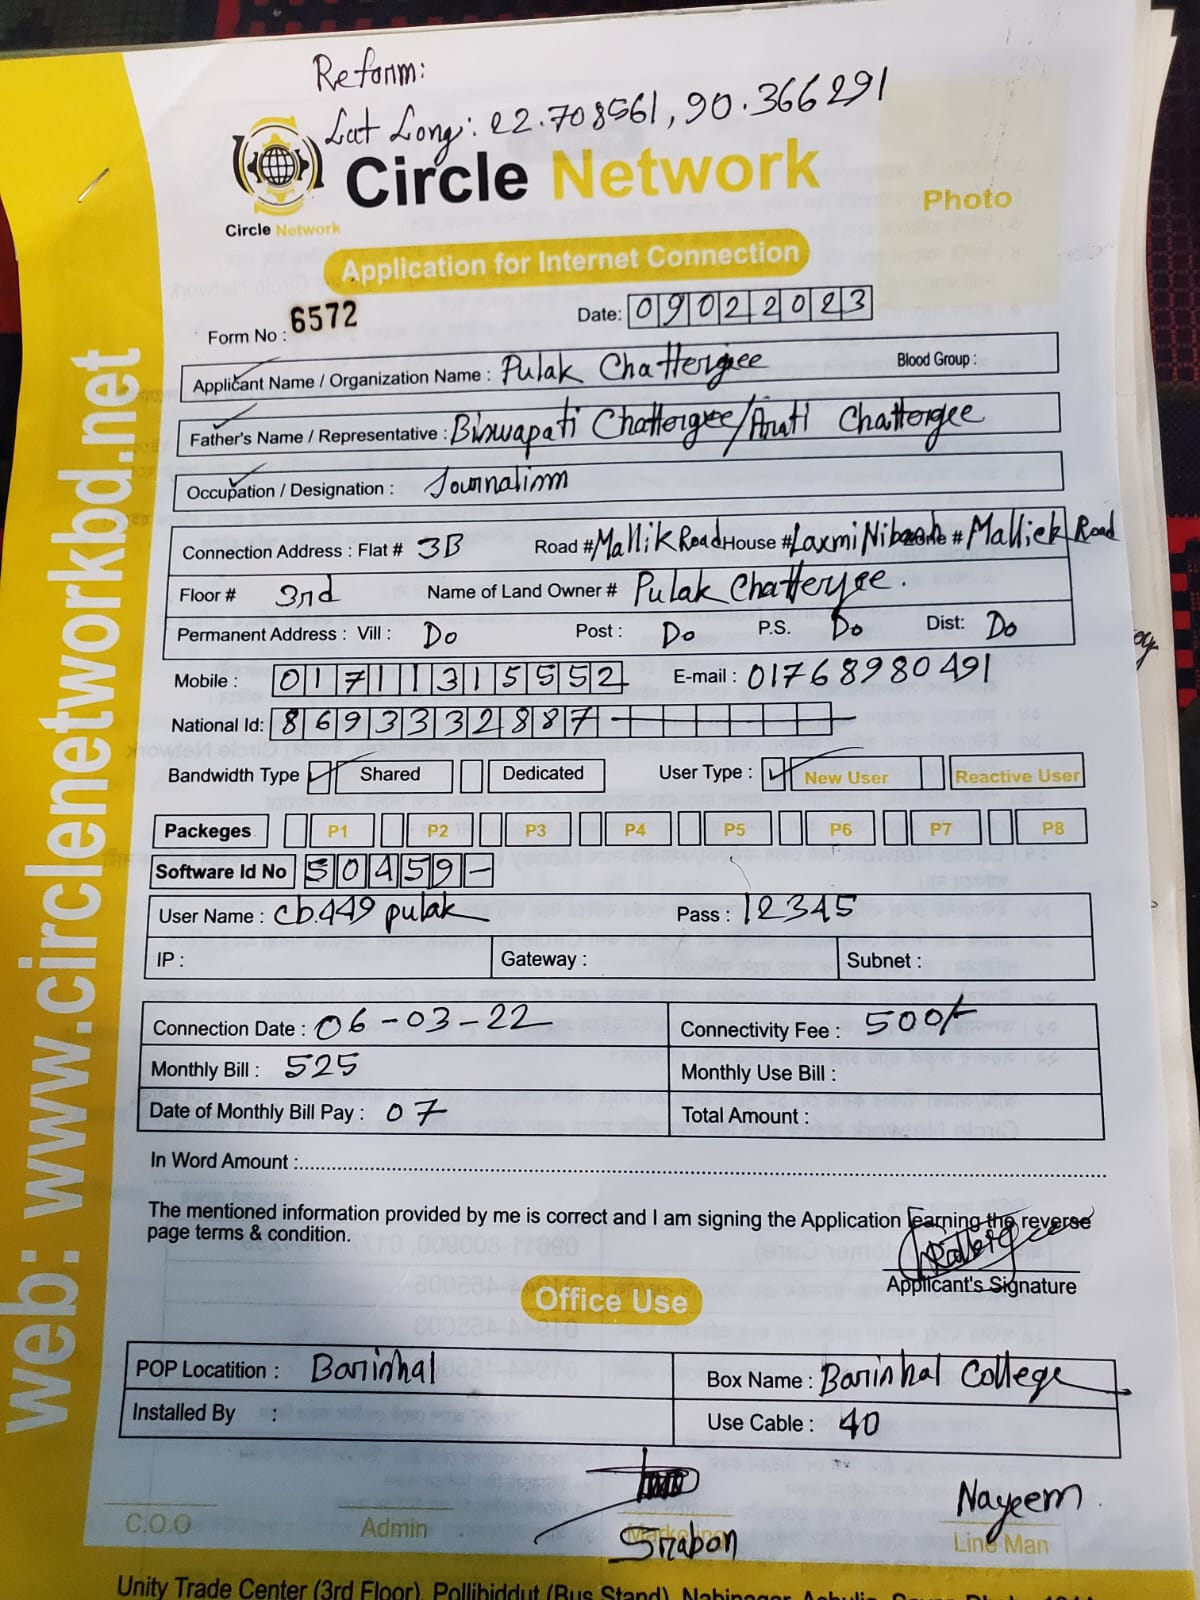 Reform:
Lat Long: 22.708561, 90.366291
Circle Network
Circle Network
Photo
Application for Internet Connection
Form No : 6572
Date: 09022023
Applicant Name / Organization Name : Pulak Chattergiee Blood Group :
Father's Name / Representative : Biswapati Chattergee/Arati Chattergee
Occupation / Designation : Journalism
Connection Address : Flat # 3B Road # Mallik Road House # Laxmi Nibash Zone # Mallick Road
Floor # 3rd Name of Land Owner # Pulak Chatterjee.
Permanent Address : Vill : Do Post : Do P.S. Do Dist: Do
Mobile : 01711315552 E-mail : 01768980491
National Id: 8693332887
Bandwidth Type Shared Dedicated User Type : New User Reactive User
Packeges P1 P2 P3 P4 P5 P6 P7 P8
Software Id No 50459-
User Name : cb.449 pulak Pass : 12345
IP : Gateway : Subnet :
Connection Date : 06-03-22 Connectivity Fee : 500/-
Monthly Bill : 525 Monthly Use Bill :
Date of Monthly Bill Pay : 07 Total Amount :
In Word Amount :
The mentioned information provided by me is correct and I am signing the Application learning the reverse
page terms & condition.
Applicant's Signature
Office Use
POP Locatition : Barishal Box Name : Barishal College
Installed By : Use Cable : 40
Srabon Nayeem
C.O.O Admin Marketing Line Man
Unity Trade Center (3rd Floor), Pollibiddut (Bus Stand), Nabinagar, Ashulia, Savar, Dhaka
web: www.circlenetworkbd.net